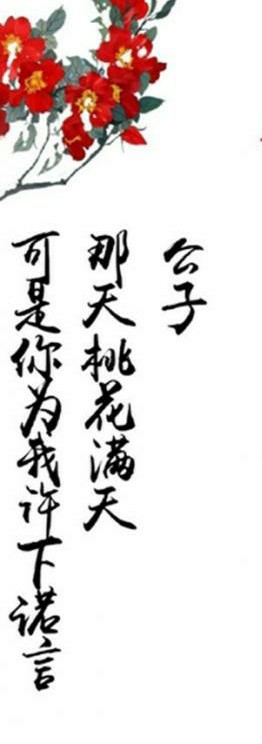 公子
那天桃花满天
可是你为我许下诺言